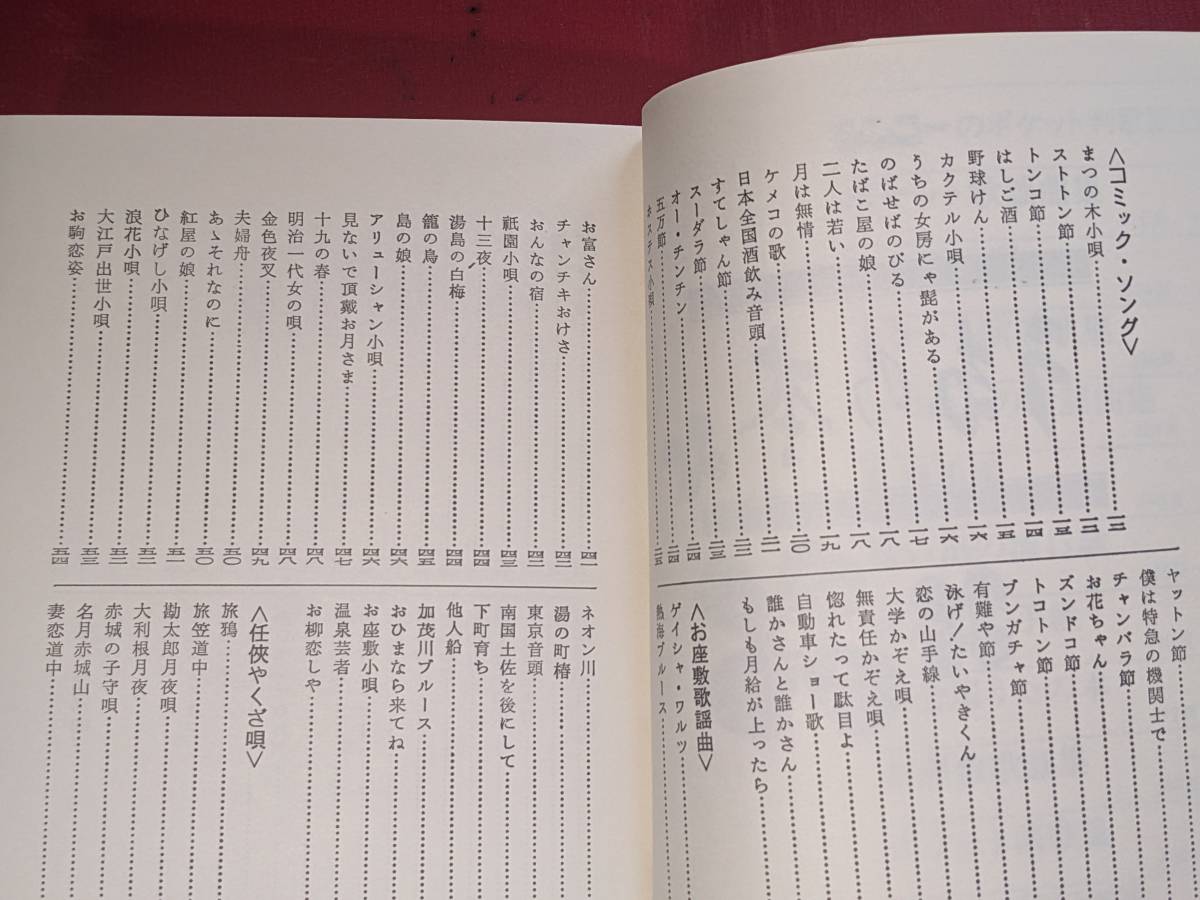 <コミック・ソング>
まつの木小唄……一二
ストトン節……一三
トンコ節……一三
はしご酒……一四
野球けん……一五
カクテル小唄……一六
うちの女房にゃ髭がある……一六
のばせばのびる……一七
たばこ屋の娘……一八
二人は若い……一八
月は無情……一九
ケメコの歌……二〇
日本全国酒飲み音頭……二一
すてしゃん節……二二
スーダラ節……二三
オー・チンチン……二四
五万節……二四
ホステス小唄……二五
ヤットン節……
僕は特急の機関士で……
チャンバラ節……
お花ちゃん……
ズンドコ節……
トコトン節……
ブンガチャ節……
有難や節……
泳げ!たいやきくん……
恋の山手線……
大学かぞえ唄……
無責任かぞえ唄……
惚れたって駄目よ……
自動車ショー歌……
誰かさんと誰かさん……
もしも月給が上ったら……
<お座敷歌謡曲>
ゲイシャ・ワルツ……
熱海ブルース……
お富さん……四一
チャンチキおけさ……四二
おんなの宿……四二
祇園小唄……四三
十三夜……四四
湯島の白梅……四四
籠の鳥……四五
島の娘……四六
アリューシャン小唄……四六
見ないで頂戴お月さま……四七
十九の春……四八
明治一代女の唄……四八
金色夜叉……四九
夫婦舟……五〇
あゝそれなのに……五〇
紅屋の娘……五一
ひなげし小唄……五二
浪花小唄……五二
大江戸出世小唄……五三
お駒恋姿……五四
ネオン川……
湯の町椿……
東京音頭……
南国土佐を後にして……
下町育ち……
他人船……
加茂川ブルース……
おひまなら来てね……
お座敷小唄……
温泉芸者……
お柳恋しや……
<任侠やくざ唄>
旅鴉……
旅笠道中……
勘太郎月夜唄……
大利根月夜……
赤城の子守唄……
名月赤城山……
妻恋道中……